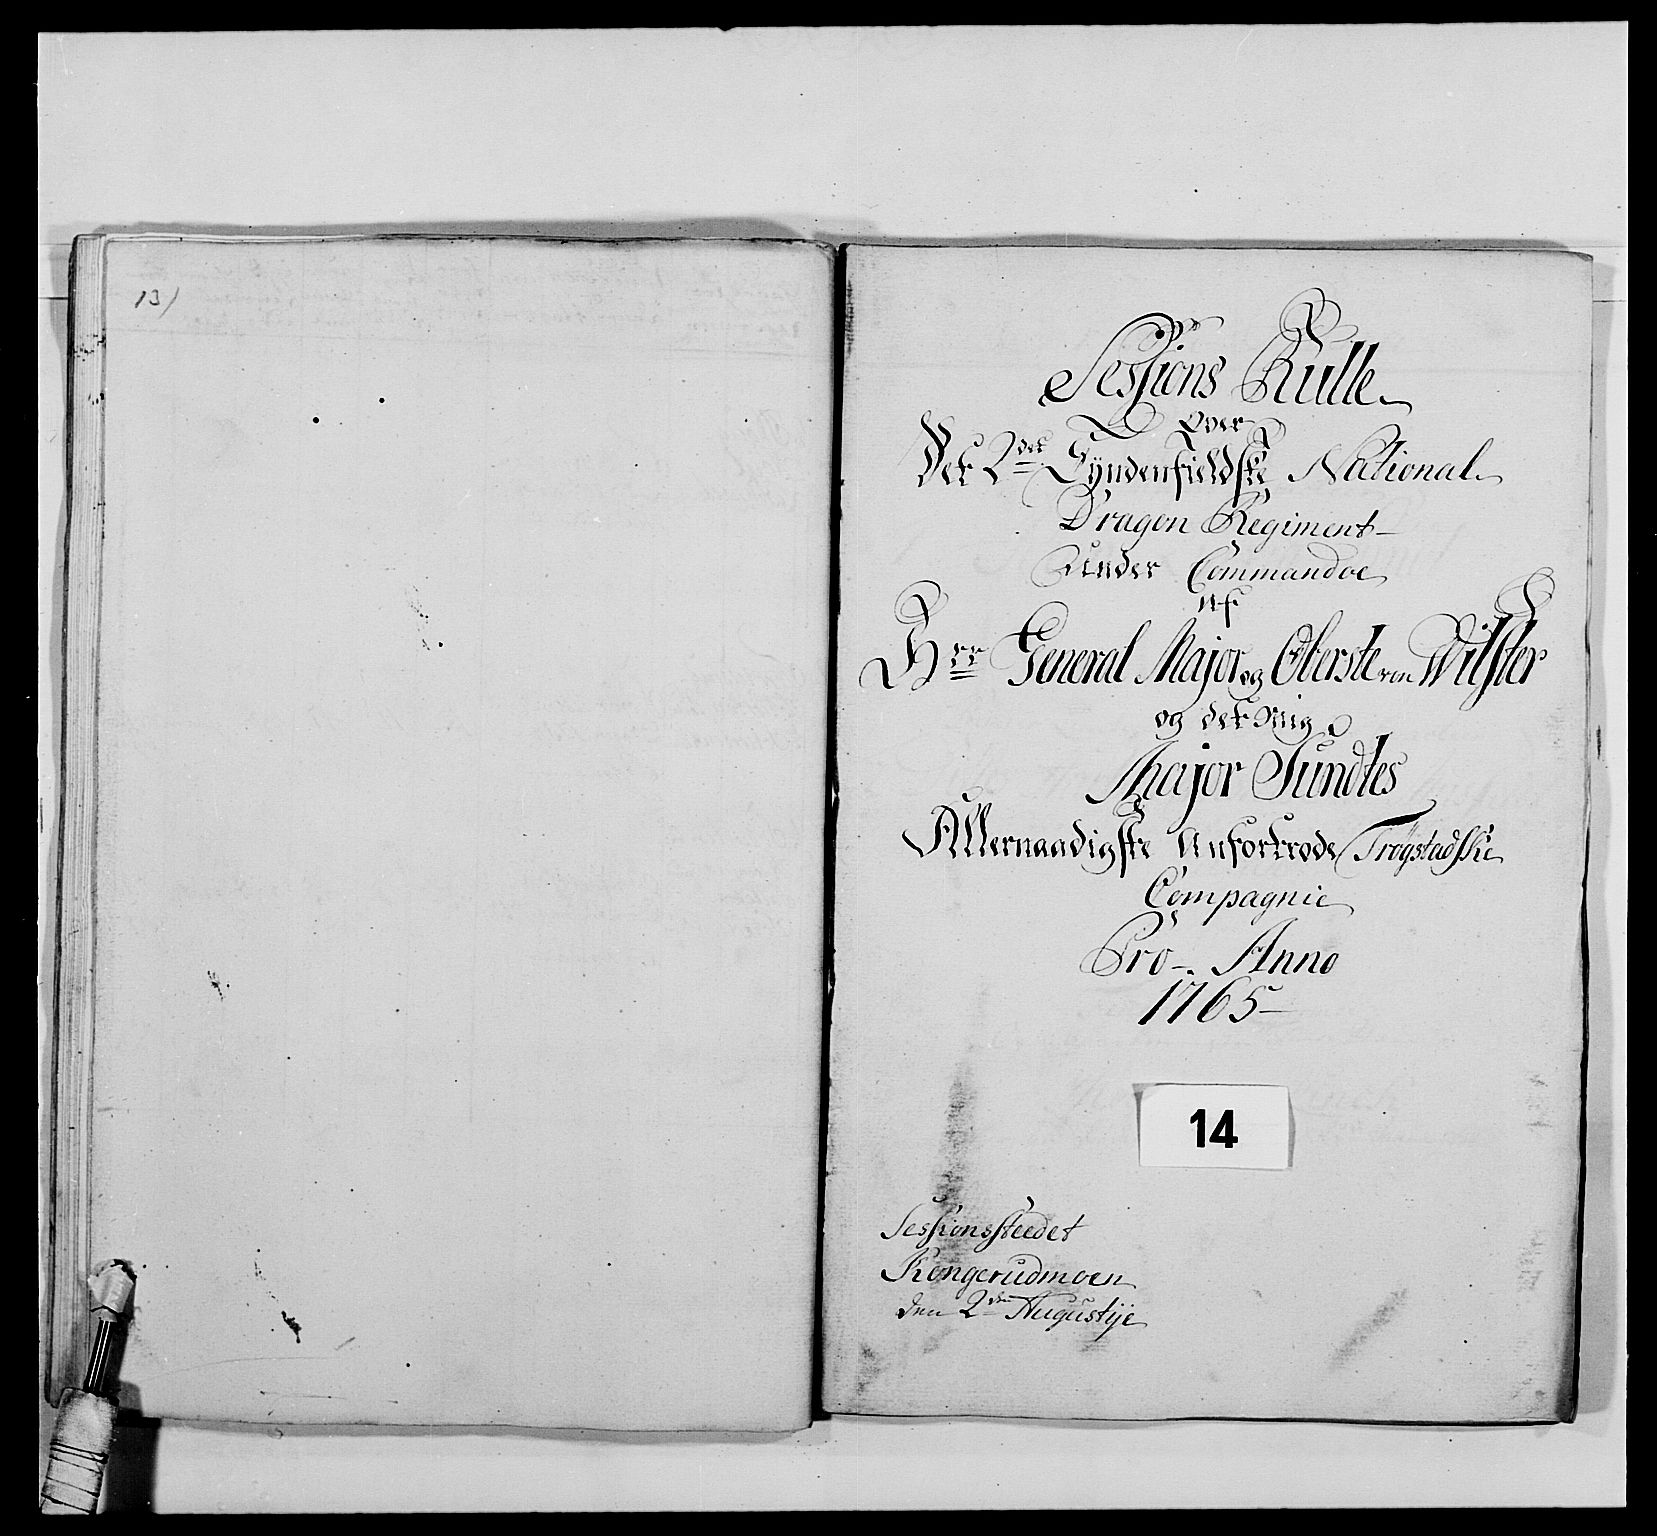 13)
Sessions Rulle
over
Det 2det Syndenfieldske National
Dragon Regiment
Under Commandoe
af
Hrr General Major og Oberste von Wilster
og det Mig
Major Sundtes
Allernaadigste Anfortrode Trøgstadske
Compagnie
Pro Anno
1765
14
Sessionssteedet
Kongerudmoen
den 2den Augustije